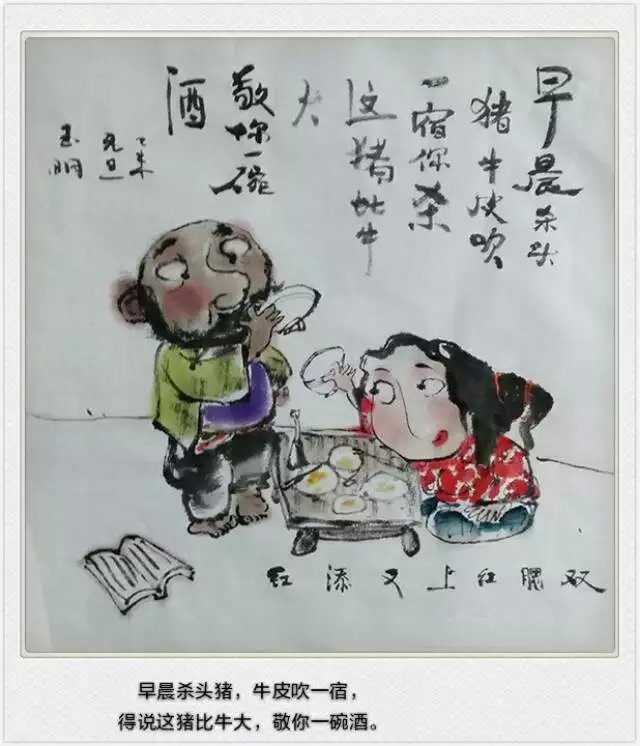 早晨杀头
猪牛皮吹
一宿你杀
这猪比牛
大
敬你一碗
酒
乙未
元旦
双腮红上又添红
早晨杀头猪，牛皮吹一宿，
得说这猪比牛大，敬你一碗酒。